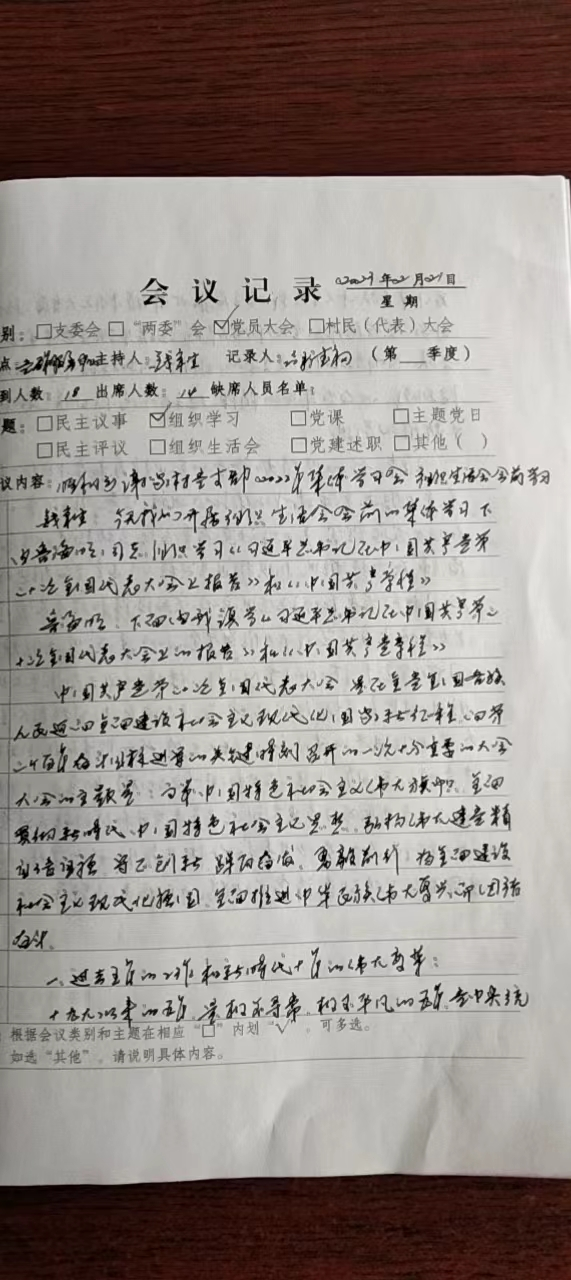 会议记录 2023年02月21日
星期
别：□支委会 □“两委”会 ☑党员大会 □村民（代表）大会
点： 主持人： 记录人： （第 季度）
到人数：18 出席人数：14 缺席人员名单：
题：□民主议事 ☑组织学习 □党课 □主题党日
□民主评议 □组织生活会 □党建述职 □其他（ ）
议内容： 村党支部2022年集体学习会 组织生活会会前学习
今天我们开展组织生活会会前的集体学习 下
同志组织学习《习近平总书记在中国共产党第
二十次全国代表大会上报告》和《中国共产党章程》
下面由我领学《习近平总书记在中国共产党第二
十次全国代表大会上的报告》和《中国共产党章程》
中国共产党第二十次全国代表大会 是在全党全国各族
人民迈上全面建设社会主义现代化国家新征程 向第
二个百年奋斗目标进军的关键时刻召开的一次十分重要的大会
大会的主题是：高举中国特色社会主义伟大旗帜 全面
贯彻新时代中国特色社会主义思想 弘扬伟大建党精
自信自强 守正创新 踔厉奋发 勇毅前行 为全面建设
社会主义现代化强国 全面推进中华民族伟大复兴而团结
奋斗.
一、过去五年的工作和新时代十年的伟大变革：
十九大以来的五年 是极不寻常 极不平凡的五年 党中央统
：根据会议类别和主题在相应“□”内划“√”，可多选。
如选“其他”，请说明具体内容。